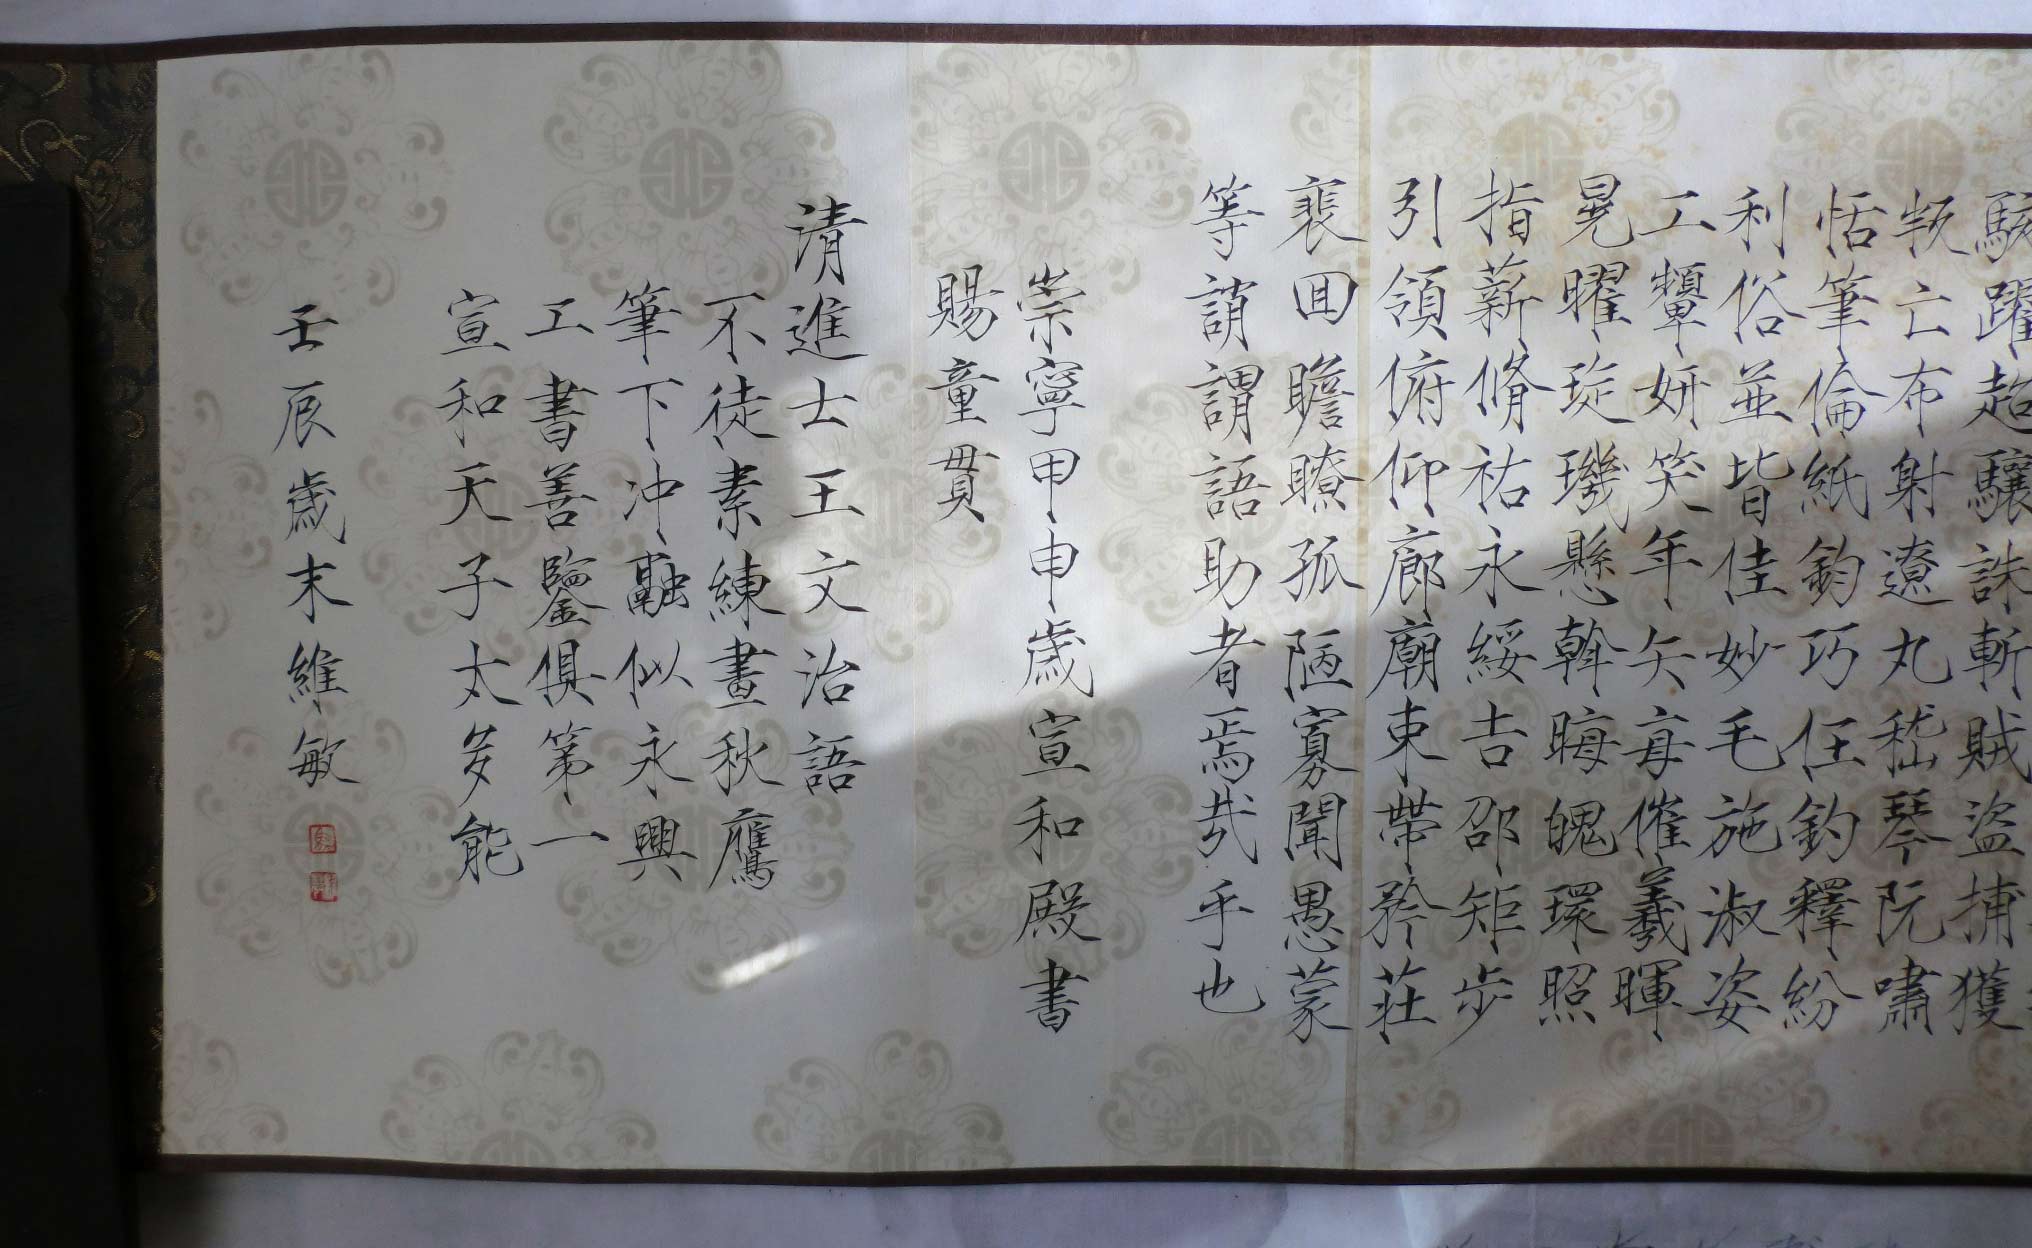 駭躍超驤誅斬賊盜捕獲
叛亡布射遼丸嵇琴阮嘯
恬筆倫紙鈞巧任釣釋紛
利俗並皆佳妙毛施淑姿
工顰妍笑年矢每催羲暉
晃曜琁璣懸斡晦魄環照
指薪脩祜永綏吉邵矩步
引領俯仰廊廟束帶矜莊
裵回瞻瞭孤陋寡聞愚蒙
等誚謂語助者焉哉乎也
崇寧甲申歲宣和殿書
賜童貫
清進士王文治語
不徒素練畫秋鷹
筆下沖融似永興
工書善鑒俱第一
宣和天子太多能
壬辰歲末維敏